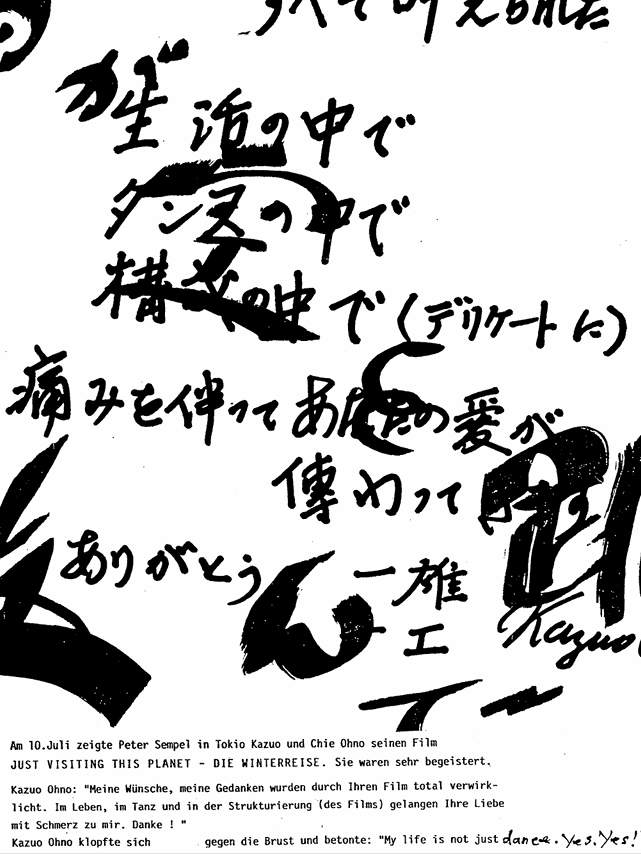 すべて叶えられた
が生活の中で
ダンスの中で
構成の中で(デリケートに)
痛みを伴って あなたの愛が
傳わって
ありがとう
一雄
Kazuo
Am 10.Juli zeigte Peter Sempel in Tokio Kazuo und Chie Ohno seinen Film
JUST VISITING THIS PLANET - DIE WINTERREISE. Sie waren sehr begeistert.
Kazuo Ohno: "Meine Wünsche, meine Gedanken wurden durch Ihren Film total verwirk-
licht. Im Leben, im Tanz und in der Strukturierung (des Films) gelangen Ihre Liebe
mit Schmerz zu mir. Danke ! "
Kazuo Ohno klopfte sich gegen die Brust und betonte: "My life is not just dance. Yes. Yes!